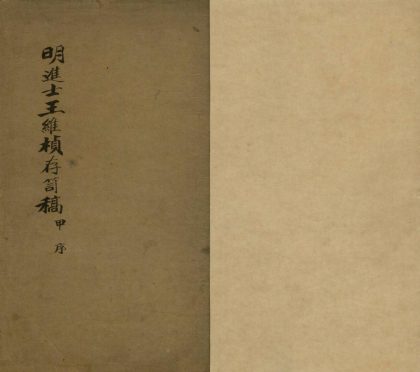 明進士王維楨存笥稿甲序